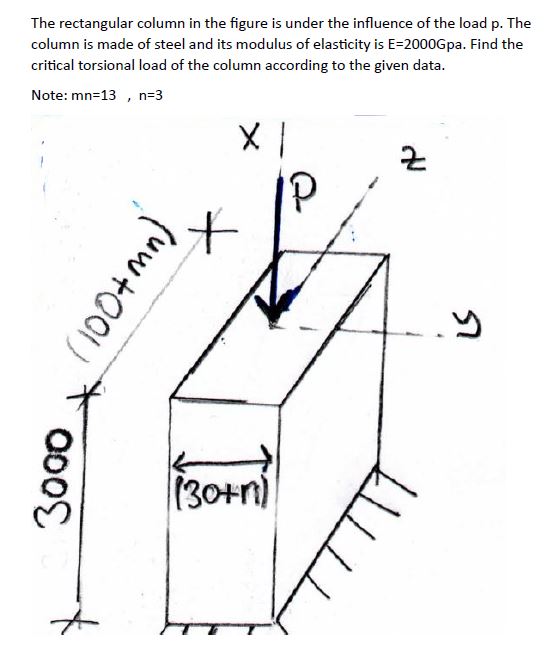 The rectangular column in the figure is under the influence of the load p. The
column is made of steel and its modulus of elasticity is E=2000Gpa. Find the
critical torsional load of the column according to the given data.
Note: mn=13 , n=3
X
z
P
(100+mn)
y
3000
(30+n)